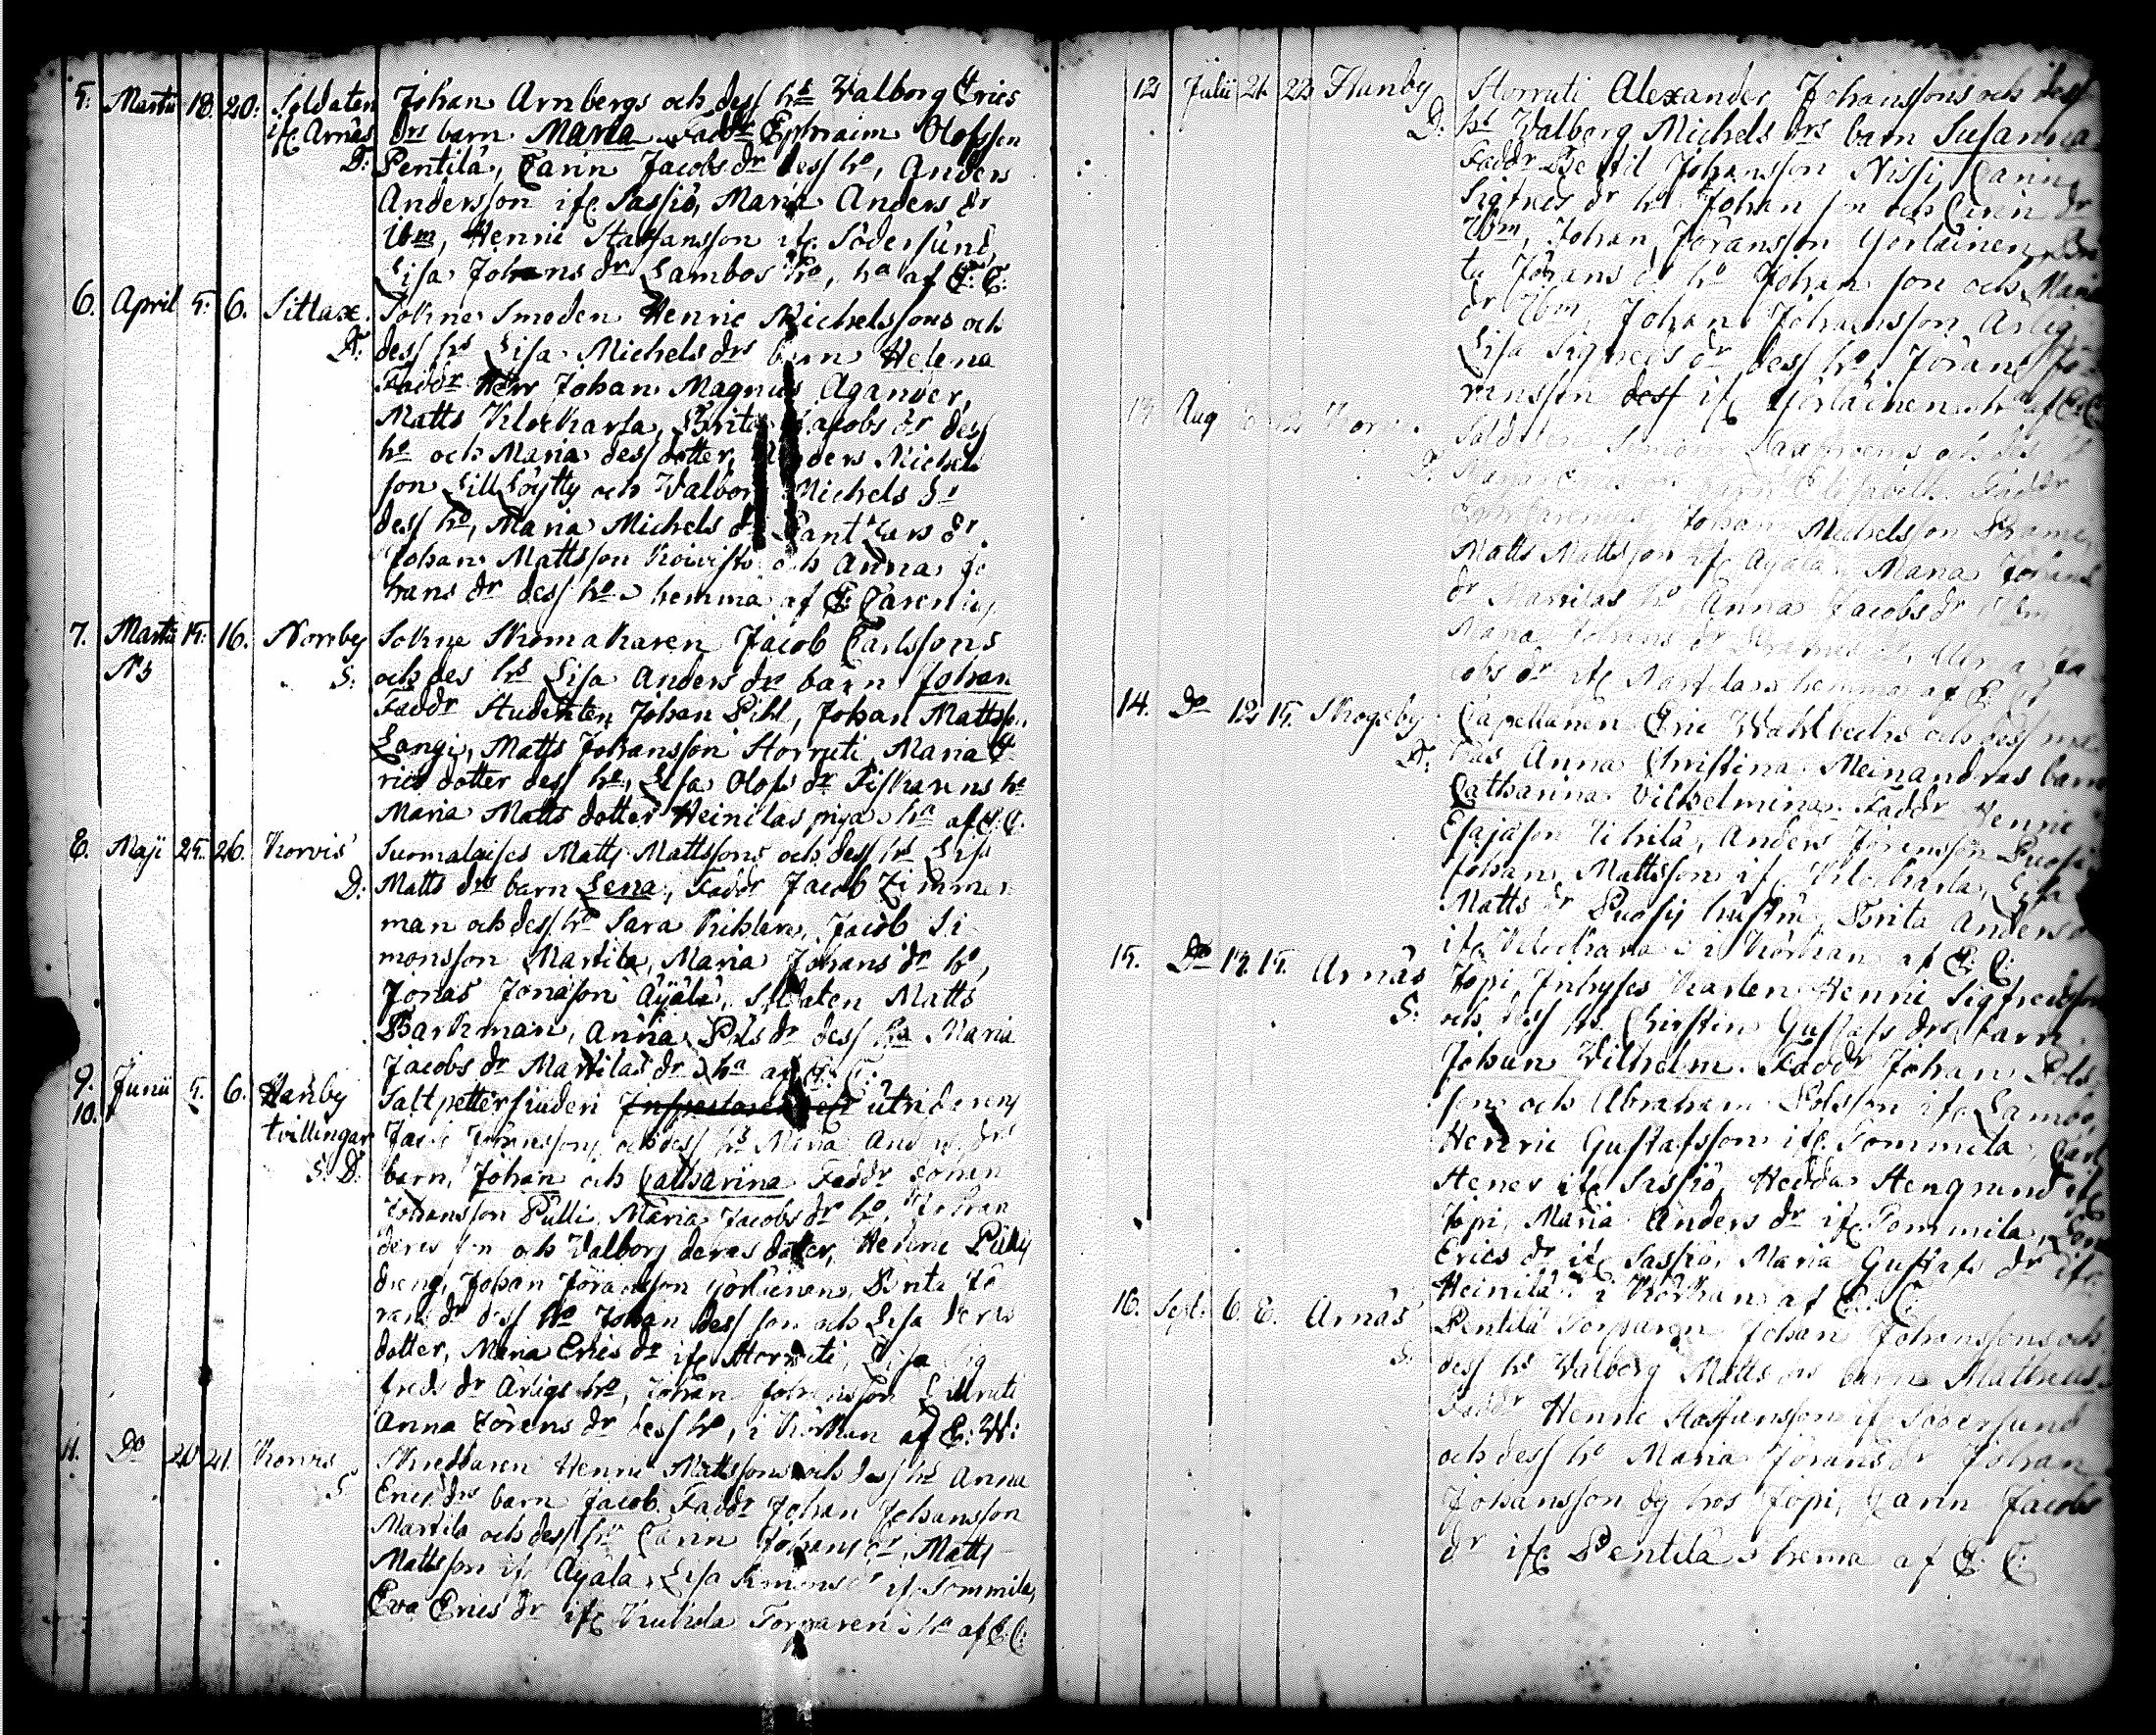 5. Martii 18. 20. Soldaten Johan Arnbergs och dess hs Walborg Erics
ifr. Arnäs drs barn Maria Faddr Ephraim Olofsson
D: Pentilä, Carin Jacobs dr dess ho, Anders
Andersson ifr. Sassiö, Maria Anders dr
Ibm, Henric Staffansson ifr. Södersund,
Lisa Johans dr Lambos ho, ha af E: C:
6. April 5. 6. Sittlax. Sokne Smeden Henric Michelssons och
D: dess hs Lisa Michels drs barn Helena
Faddr Herr Johan Magnus Agander,
Matts Klockarla, Brita Jacobs dr dess
ho och Maria dess dotter, Anders Michels
son Lill Löytty och Walborg Michels dr
dess ho, Maria Michels dr Lars dr
Johan Mattsson Koivisto och Anna Jo
hans dr dess ho hemma af E: Carenius
7. Martii 15. 16. Norrby Sokne Skomakaren Jacob Carlssons
N3 S: och des hs Lisa Anders drs barn Johan
Faddr Studenten Johan Pihl, Johan Mattsson
Langi, Matts Johansson Storruti Maria E
rics dotter dess ho, Lisa Olofs dr Fiskarens ho
Maria Matts dotter Heinilas piga ha af E: C:
8. Maji 25. 26. Korvis Suomalaises Matts Mattssons och dess hs Lisa
D: Matts drs barn Lena, Faddr Jacob Zimmer
man och dess ho Sara Jacob Si
monsson Martila, Maria Johans dr ho,
Jonas Jonasson Äyälä, Soldaten Matts
Barkman, Anna Påls dr dess ho Maria
Jacobs dr Martilas dr ha af E: C:
9. Junii 5. 6. Hanby Saltpetter siuderi utridarens
10. tvillingar Jöranssons och dess hs Maria Anders drs
S. D: barn, Johan och Catharina Faddr
Johansson Pulli, Maria Jacobs dr ho, Johan
deres son och Walborg deras dotter, Henric Pullis
dreng, Johan Göransson Yörläinen, Brita Jö
rans dr dess ho Johan dess son och Lisa deras
dotter, Maria Erics dr ifr Storruti, Lisa Sig
freds dr Arligs ho, Johan Johansson Lillruti
Anna Görens dr dess ho, i Kyrkan af E: W:
11. Do 20 21. Korvis Skreddaren Henric Mattssons och dess hs Anna
S Erics drs barn Jacob. Faddr Johan Johansson
Martila och dess ho Carin Johans dr, Matts
Mattsson ifr Äyälä, Lisa Simons dr ifr Tommila,
Eva Erics dr ifr Torparen ha af E: C:
12 Julii 21. 22 Hanby Storruti Alexander Johanssons och dess
D: hs Walborg Michels drs barn Susanna
Faddr Bertil Johansson Nissi, Carin
Sigfreds dr ho Johan son och Carin dr
Ibm, Johan Jöransson Yörläinen, Bri
ta Jörans dr ho Johan son och Maria
dr Ibm, Johan Johansson Arlig
Lisa Sigfreds dr dess ho, Jöran Jö
ransson dess ifr Yörläinen ha af E: C:
13 Aug Korvis Soldaten och dess
D. Maria barn Elisabeth. Faddr
Johan Michelsson
Matts Mattsson ifr Äyälä, Maria Johans
dr Martilas ho Anna Jacobs dr Ibm
Maria Johans dr Maria Ja
cobs dr ifr Martila hemma af E: C:
14. Do 12 15. Skogsby Capellanen Eric Wahlbecks och dess ma
D: kas Anna Christina Meinandras barn
Catharina Vilhelmina. Faddr Henric
Esajason Uckila, Anders Jöransson
Johan Mattsson ifr Klockarla, Lisa
Matts dr hustru, Brita Anders dr
ifr Klockarla i Kyrkan af E: C:
15. Do 14 15. Arnäs Jopi Inhyses Karlen Henric Sigfredsson
S: och dess hs Christin Gustafs drs barn
Johan Wilhelm. Faddr Johan Påls
son och Abraham Pålsson ifr Lambo,
Henric Gustafsson ifr Tommila, Carl
Stenes ifr Sassiö, Hedda Stengrund ifr
Jopi, Maria Anders dr ifr Tommila, Lena
Erics dr ifr Sassiö, Maria Gustafs dr ifr
Heinilä i Kyrkan af E: C:
16. Sept. 6. 8. Arnäs Pentilä Torparen Johan Johanssons och
S: dess hs Walborg Matts drs barn Mathias.
Faddr Henric Staffansson ifr Södersund
och dess ho Maria Jörans dr Johan
Johansson dg hos Jopi, Carin Jacobs
dr ifr. Pentilä hema af E: C: